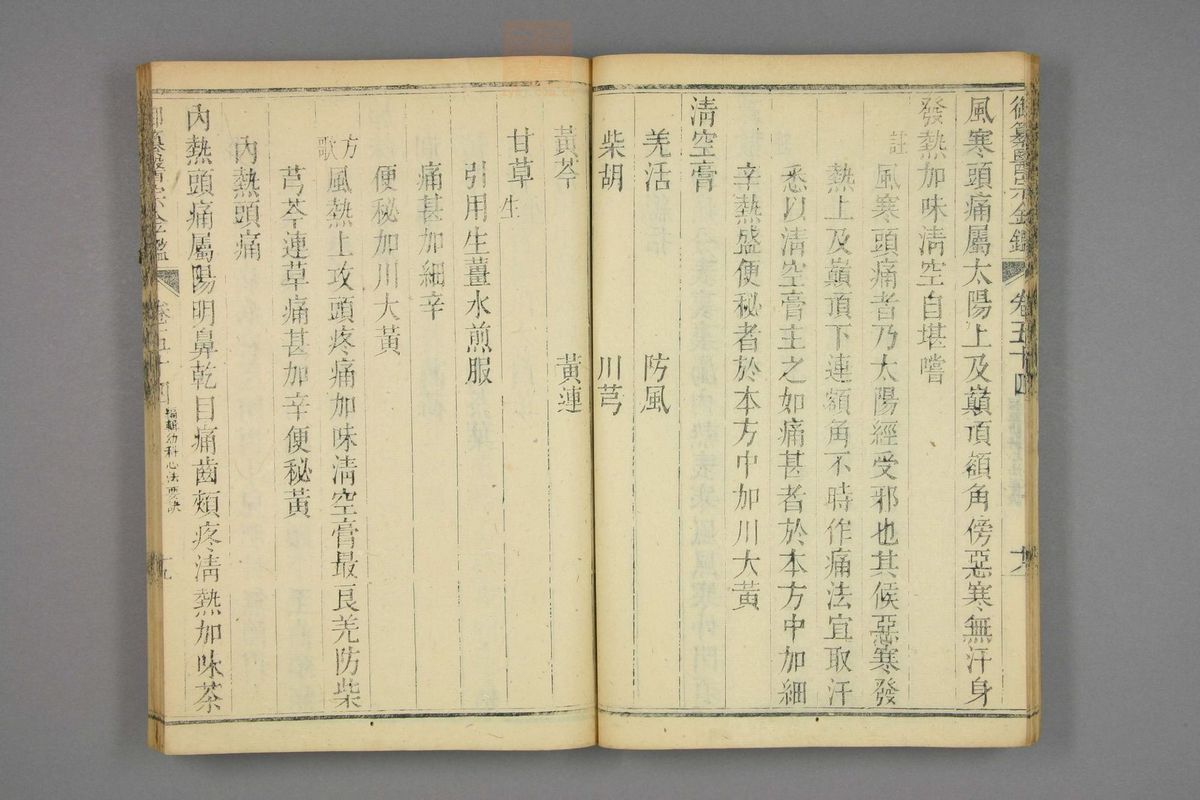 御纂醫宗金鑑 卷五十四
風寒頭痛屬太陽上及巔頂額角傍惡寒無汗身
發熱加味清空自堪嚐
註風寒頭痛者乃太陽經受邪也其候惡寒發
熱上及巔頂下連額角不時作痛法宜取汗
悉以清空膏主之如痛甚者於本方中加細
辛熱盛便秘者於本方中加川大黃
清空膏
羌活 防風
柴胡 川芎
黃芩 黃連
甘草生
引用生薑水煎服
痛甚加細辛
便秘加川大黃
方歌風熱上攻頭疼痛加味清空膏最良羌防柴
芎芩連草痛甚加辛便秘黃
內熱頭痛
內熱頭痛屬陽明鼻乾目痛齒頰疼清熱加味茶
御纂醫宗金鑑 卷五十四 編輯幼科心法要訣 十九